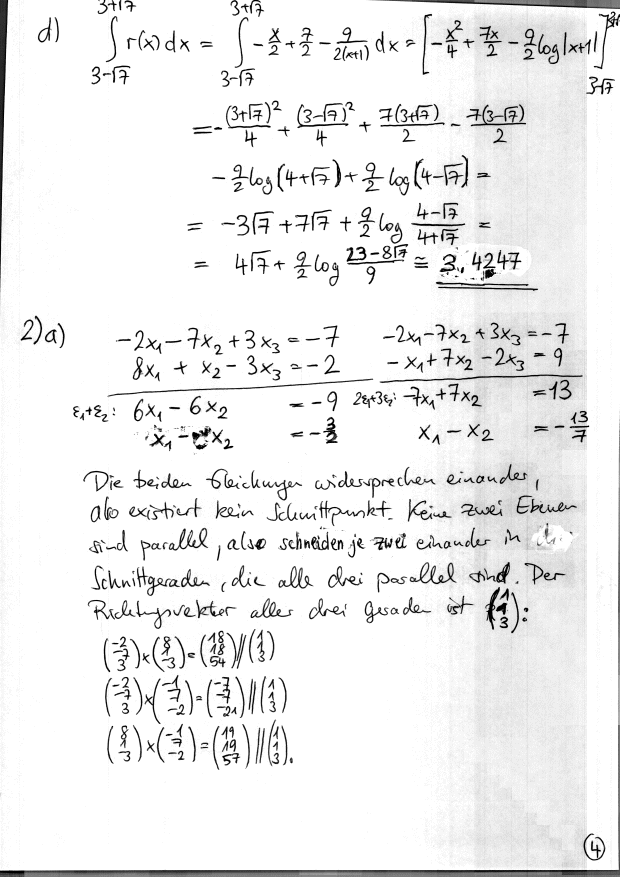 d) ∫_{3-√7}^{3+√7} r(x) dx = ∫_{3-√7}^{3+√7} -x/2 + 7/2 - 9/(2(x+1)) dx = [-x²/4 + 7x/2 - 9/2 log|x+1|]_{3-√7}^{3+√7}
= -(3+√7)²/4 + (3-√7)²/4 + 7(3+√7)/2 - 7(3-√7)/2
- 9/2 log(4+√7) + 9/2 log(4-√7) =
= -3√7 + 7√7 + 9/2 log (4-√7)/(4+√7) =
= 4√7 + 9/2 log (23-8√7)/9 ≅ 3.4247
2)a) -2x₁ - 7x₂ + 3x₃ = -7    -2x₁ - 7x₂ + 3x₃ = -7
8x₁ + x₂ - 3x₃ = -2    -x₁ + 7x₂ - 2x₃ = 9
ε₁+ε₂: 6x₁ - 6x₂ = -9    2ε₁+3ε₂: -7x₁ + 7x₂ = 13
x₁ - x₂ = -3/2    x₁ - x₂ = -13/7
Die beiden Gleichungen widersprechen einander,
also existiert kein Schnittpunkt. Keine zwei Ebenen
sind parallel, also schneiden je zwei einander in
Schnittgeraden, die alle drei parallel sind. Der
Richtungsvektor aller drei Geraden ist (1 1 3):
(-2 -7 3) × (8 1 -3) = (18 18 54) // (1 1 3)
(-2 -7 3) × (-1 7 -2) = (-7 -7 -21) // (1 1 3)
(8 1 -3) × (-1 7 -2) = (19 19 57) // (1 1 3).
4